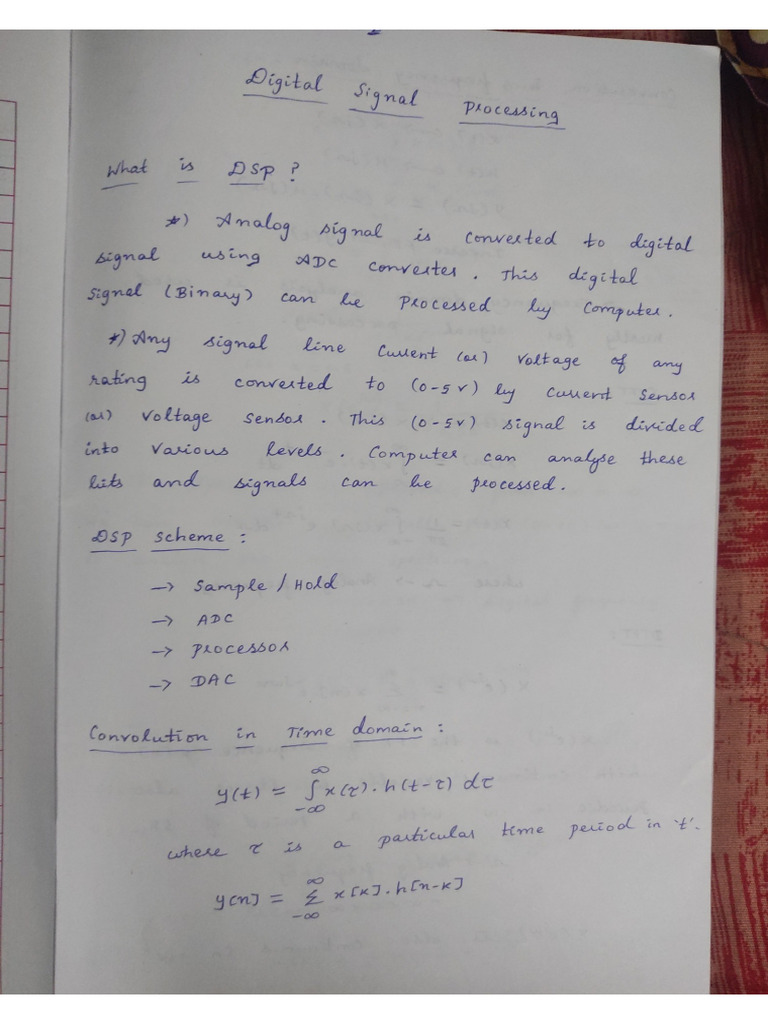 Digital Signal Processing
What is DSP?
*) Analog signal is converted to digital
signal using ADC converter. This digital
signal (Binary) can be processed by computer.
*) Any signal line current (or) voltage of any
rating is converted to (0-5v) by current sensor
(or) voltage sensor. This (0-5v) signal is divided
into various levels. Computer can analyse these
bits and signals can be processed.
DSP scheme:
→ Sample / Hold
→ ADC
→ Processor
→ DAC
Convolution in Time domain:
y(t) = ∫_{-∞}^{∞} x(τ).h(t-τ) dτ
where τ is a particular time period in 't'.
y[n] = Σ_{-∞}^{∞} x[k].h[n-k]